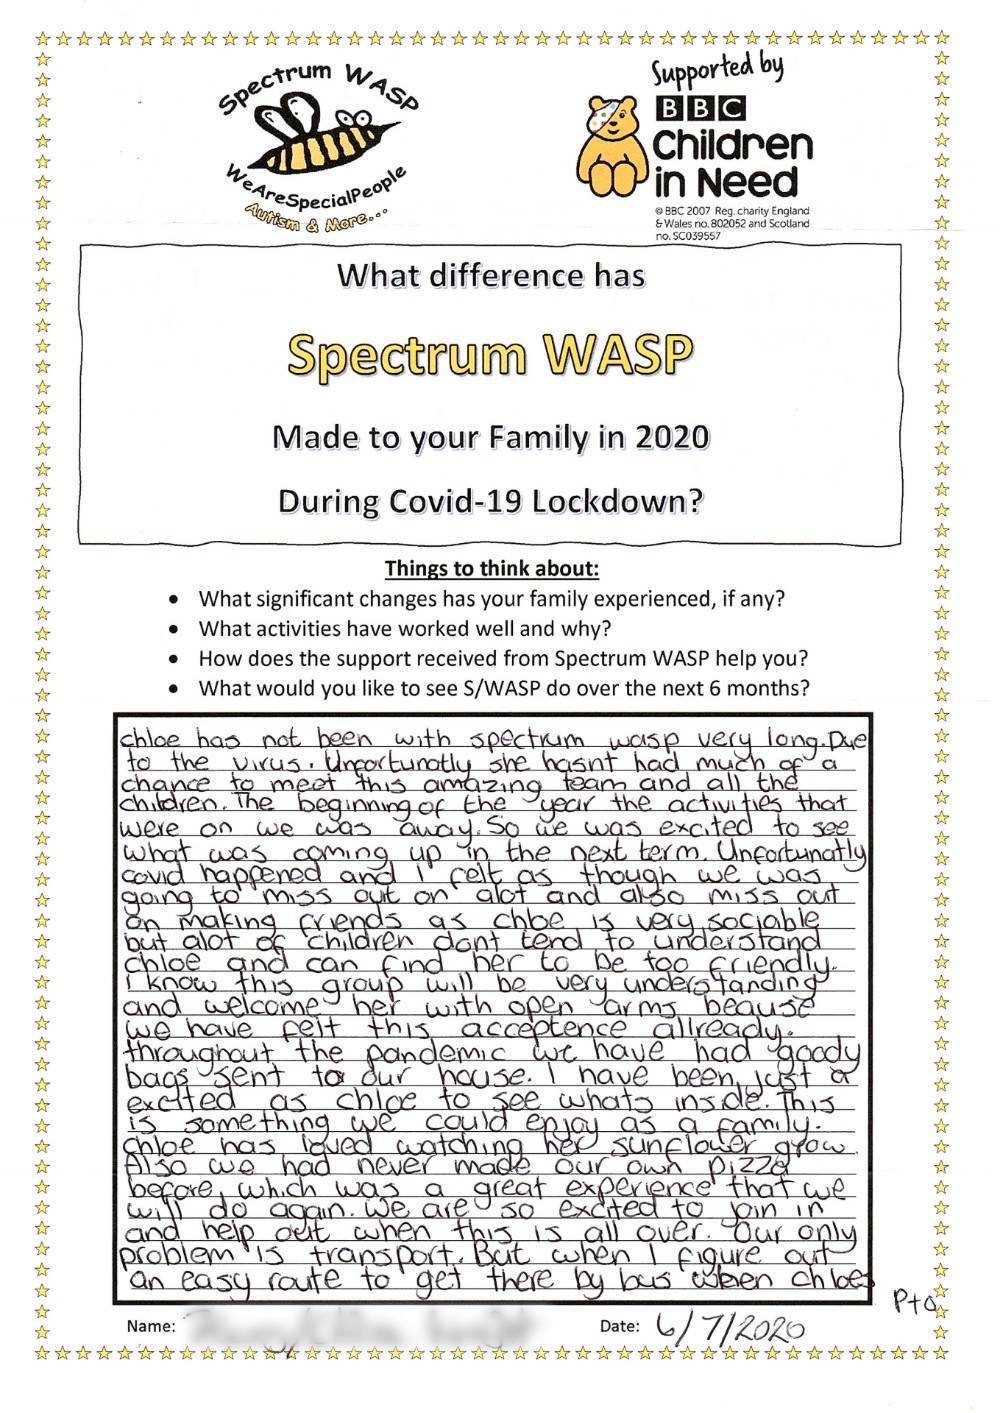 Spectrum WASP
WeAreSpecialPeople
Autism & More...
Supported by
BBC
Children
in Need
© BBC 2007 Reg. charity England
& Wales no. 802052 and Scotland
no. SC039557
What difference has
Spectrum WASP
Made to your Family in 2020
During Covid-19 Lockdown?
Things to think about:
• What significant changes has your family experienced, if any?
• What activities have worked well and why?
• How does the support received from Spectrum WASP help you?
• What would you like to see S/WASP do over the next 6 months?
chloe has not been with spectrum wasp very long. Due
to the virus. Unfortunatly she hasnt had much of a
chance to meet this amazing team and all the
children. The beginning of the year the activities that
were on we was away. So we was excited to see
what was coming up in the next term. Unfortunatly
covid happened and I felt as though we was
going to miss out on alot and also miss out
on making friends as chloe is very sociable
but alot of children dont tend to understand
chloe and can find her to be too friendly.
I know this group will be very understanding
and welcome her with open arms beause
we have felt this acceptence allready.
throughout the pandemic we have had goody
bags sent to our house. I have been just a
excited as chloe to see whats inside. This
is something we could enjoy as a family.
Chloe has loved watching her sunflower grow.
Also we had never made our own pizza
before, which was a great experience that we
will do again. We are so excited to join in
and help out when this is all over. Our only
problem is transport. But when I figure out
an easy route to get there by bus when chloes
Pto
Name:
Date: 6/7/2020